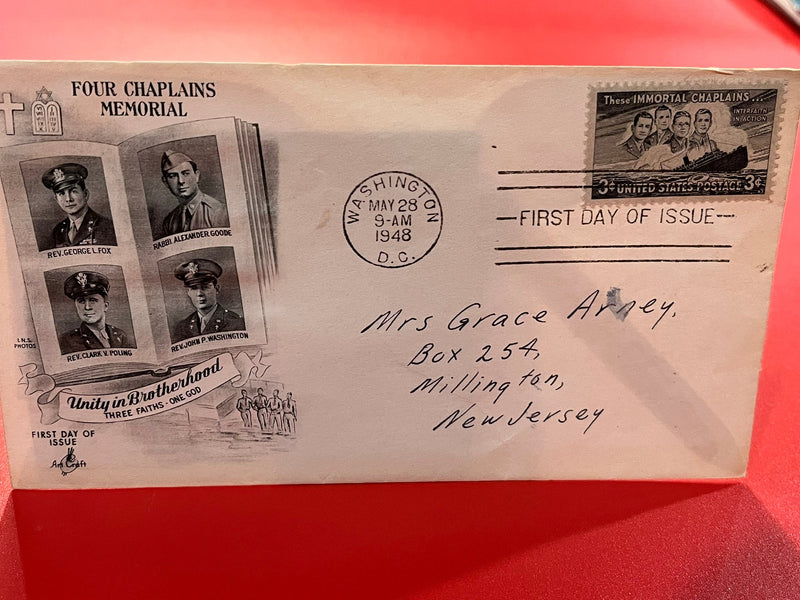 FOUR CHAPLAINS
MEMORIAL
REV. GEORGE L. FOX
RABBI ALEXANDER GOODE
REV. CLARK V. POLING
REV. JOHN P. WASHINGTON
I.N.S.
PHOTOS
Unity in Brotherhood
THREE FAITHS - ONE GOD
FIRST DAY OF
ISSUE
Art Craft
WASHINGTON
MAY 28
9-AM
1948
D.C.
These IMMORTAL CHAPLAINS...
INTERFAITH
IN ACTION
3¢ UNITED STATES POSTAGE 3¢
FIRST DAY OF ISSUE
Mrs Grace Arney,
Box 254,
Millington,
New Jersey